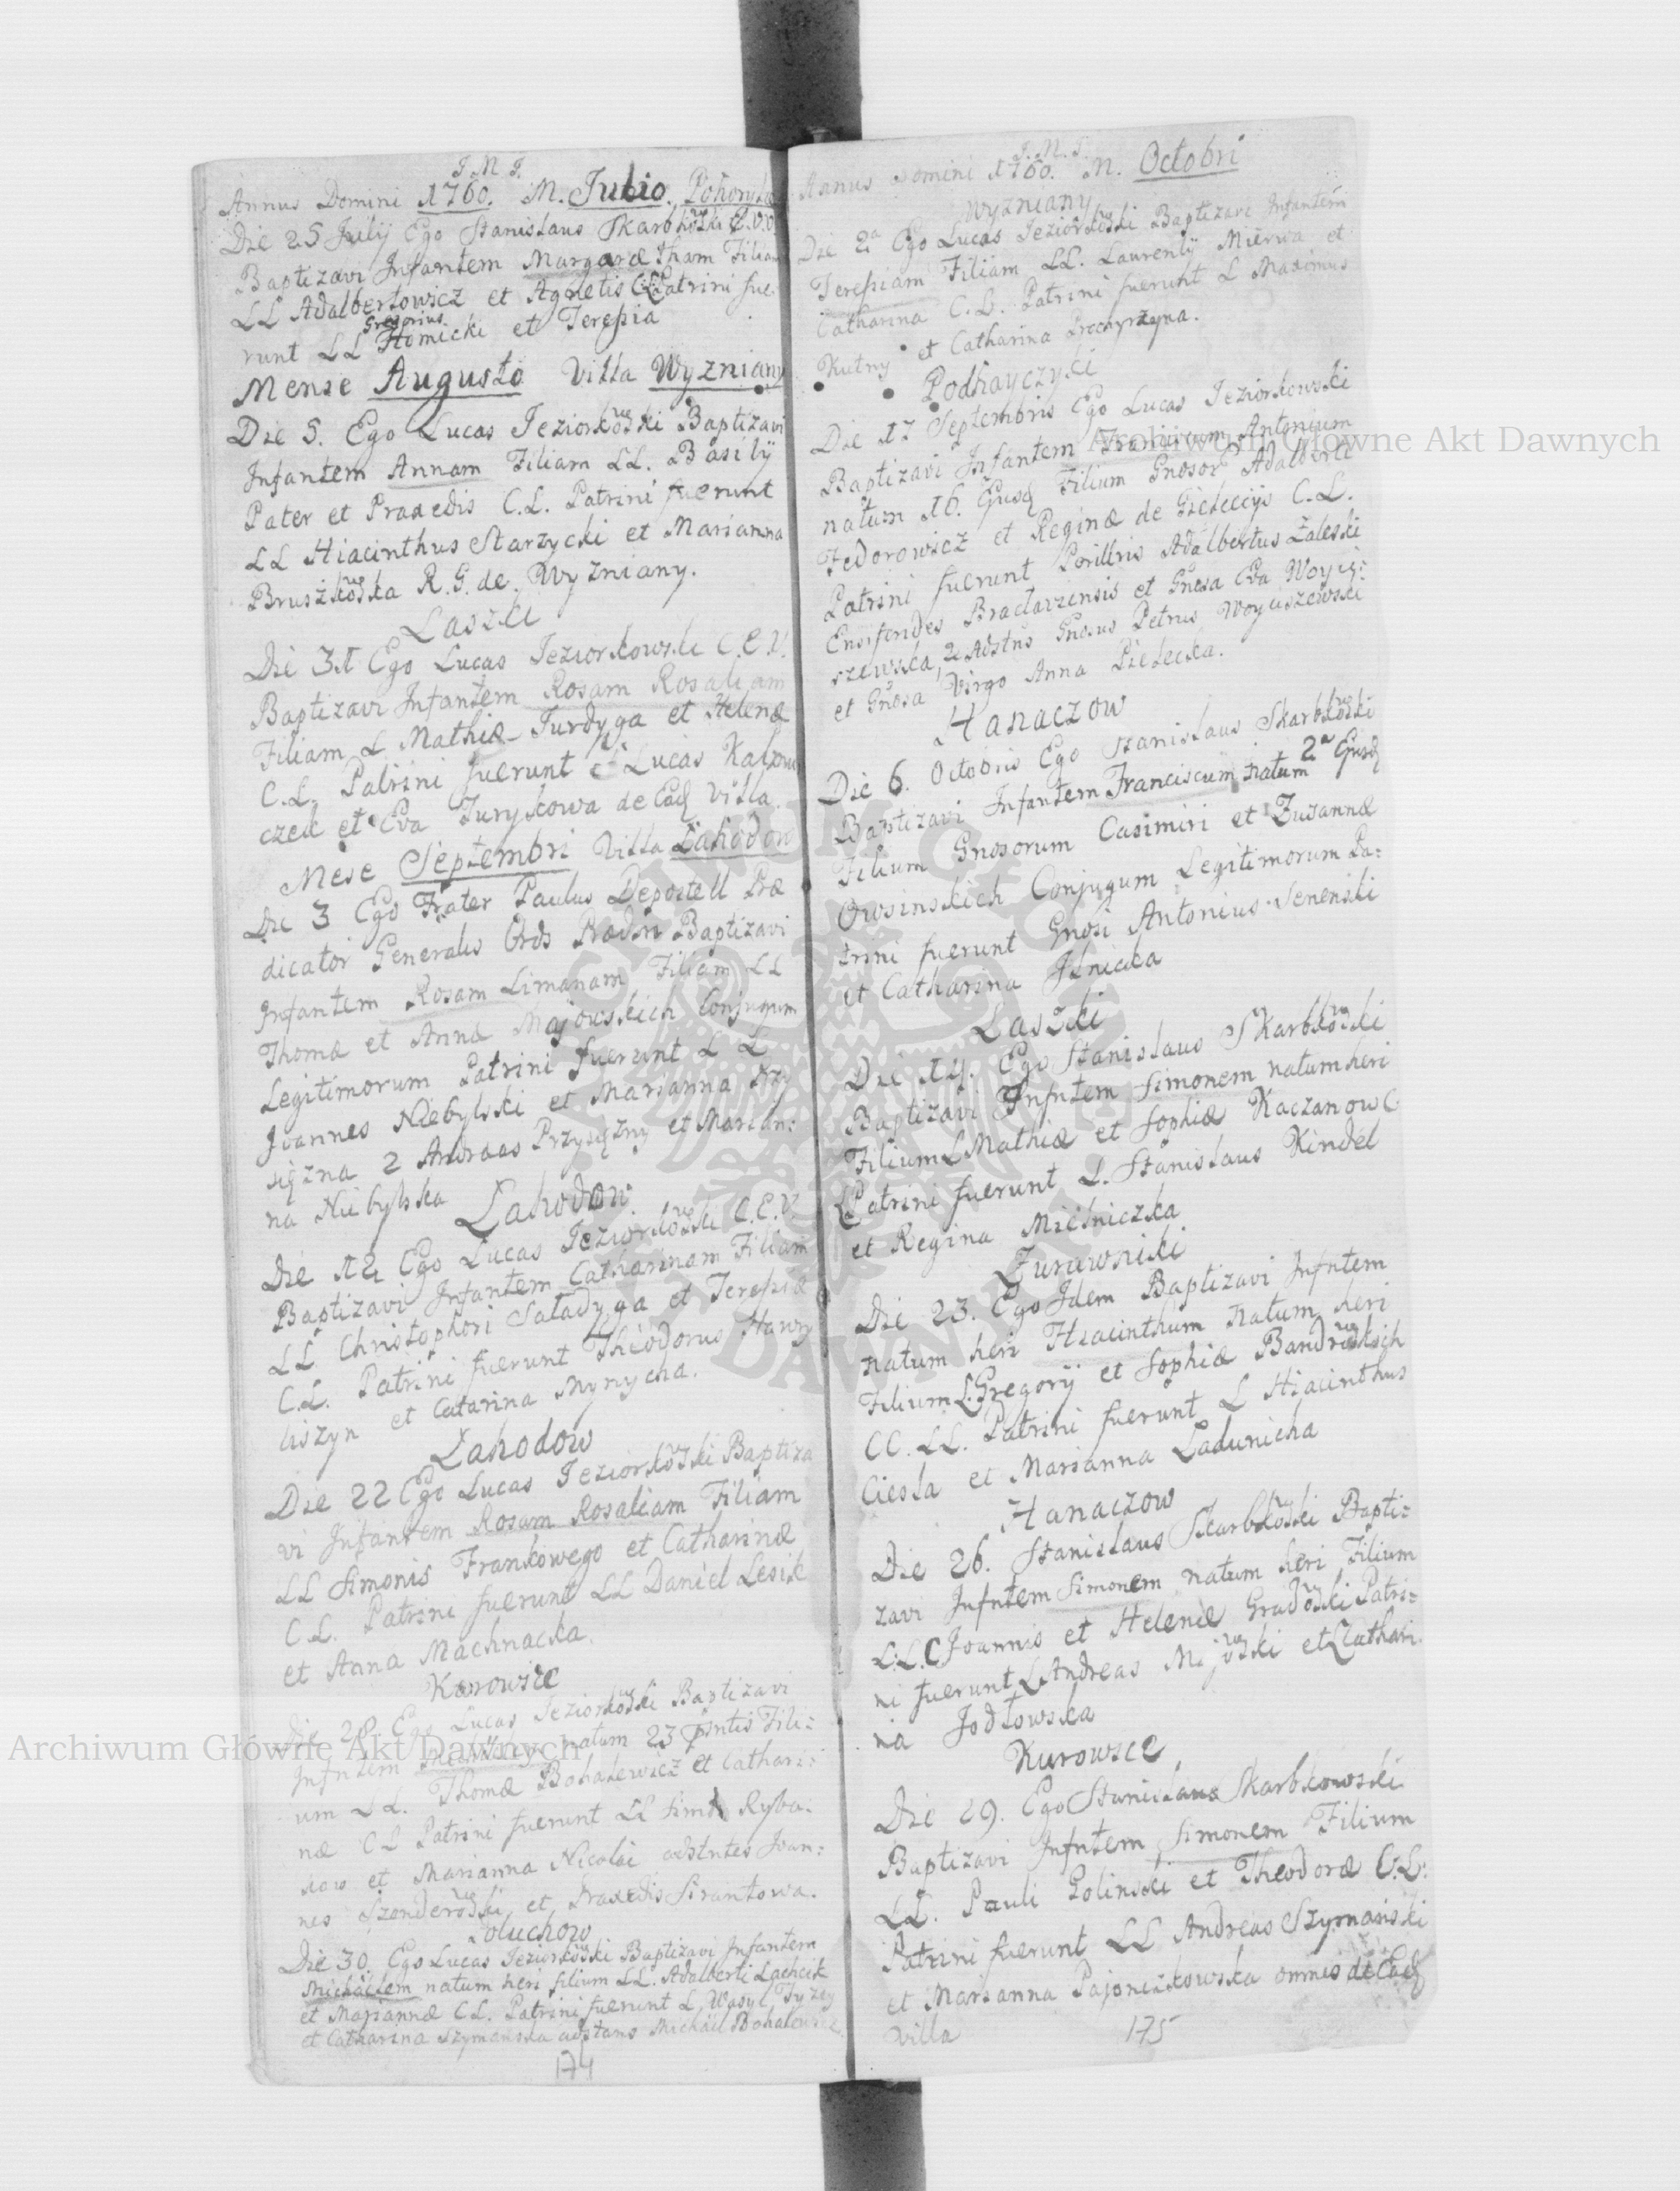 J. M. J.
Annus Domini 1760. M. Julio. Pohoryłce
Die 25 Julij Ego Stanislaus Skarbkowski C.V.V.
Baptizavi Infantem Margaretham Filiam
LL Adalbertowicz et Agnetis CL Patrini fue
Gregorius
runt LL Homicki et Teresia
Mense Augusto Villa Wyzniany
Die 5. Ego Lucas Jeziorkowski Baptizavi
Infantem Annam Filiam LL. Basilij
Pater et Praxedis C.L. Patrini fuerunt
LL Hiacinthus Starzycki et Marianna
Bruszkowska R. G. de Wyzniany.
Laszki
Die 31 Ego Lucas Jeziorkowski C.E.V.
Baptizavi Infantem Rosam Rosaliam
Filiam L Mathiæ Turdyga et Helenæ
C.L. Patrini fuerunt Lucas
czek et Eva Turykowa de Ead Villa.
Mese Septembri Villa Lahodow
Die 3 Ego Frater Paulus Depostell Præ
dicator Generalis Ords Prædm Baptizavi
Infantem Rosam Limanam Filiam LL
Thomæ et Annæ Majowskich Conjugum
Legitimorum Patrini fuerunt L L
Joannes Niebylski et Marianna Przy
siężna 2 Andreas Przysiężny et Marian:
na Niebylska
Lahodow.
Die 12 Ego Lucas Jeziorkowski C.E.V.
Baptizavi Infantem Catharinam Filiam
LL Christophori Saładyga et Teresiæ
C.L. Patrini fuerunt Theodorus Hawry
liszyn et Catarina Mynycha.
Lahodow
Die 22 Ego Lucas Jeziorkowski Baptiza
vi Infantem Rosam Rosaliam Filiam
LL Simonis Frankowego et Catharinæ
C.L. Patrini fuerunt LL Daniel Lesik
et Anna Machnacka.
Kurowice
Die 28 Ego Lucas Jeziorkowski Baptizavi
Infntem natum 23 psntis Fili:
um LL. Thomæ Bohalewicz et Cathari:
næ CL Patrini fuerunt LL Ryba:
kow et Marianna Nicolai adstntes Joan:
nes et Praxedis Sirantowa.
Soluchow
Die 30. Ego Lucas Jeziorkowski Baptizavi Infantem
Michaelem natum heri filium LL. Adalberti Lachcik
et Mariannæ CL. Patrini fuerunt L. Wasyl Tyzey
et Catharina Szymanska adstans Michael Bohalewicz
174
J. M. J.
Annus Domini 1760. M. Octobri
Wyzniany
Die 2a Ego Lucas Jeziorkowski Baptizavi Infantem
Teresiam Filiam LL. Laurentij Mierwa et
Catharina C.L. Patrini fuerunt L Maximus
Kutny et Catharina
Podhayczyki
Die 17 Septembris Ego Lucas Jeziorkowski
Baptizavi Infantem Antonium
natum 16. Eiusd Filium Gnosor Adalberti
Fedorowicz et Reginæ de C.L.
Patrini fuerunt Perillris Adalbertus Zaleski
Ensiferides Braclaviensis et Gnosa Eva Woycie:
szewska, 2 Adstns Gnosus Petrus Woyciszewski
et Gnosa Virgo Anna Pielecka.
Hanaczow
Die 6. Octobris Ego Stanislaus Skarbkowski
Baptizavi Infantem Franciscum natum 2a Eiusd
Filium Gnosorum Casimiri et Zusannæ
Owsinskich Conjugum Legitimorum Pa:
trini fuerunt Gnosi Antonius Senenski
et Catharina Ilnicka
Laszki
Die 14. Ego Stanislaus Skarbkowski
Baptizavi Infntem Simonem natum heri
Filium L Mathiæ et Sophiæ Kaczanow C
L Patrini fuerunt L. Stanislaus Kindel
et Regina Mielniczka
Zurawniki
Die 23. Ego Idem Baptizavi Infntem
natum heri Hiacinthum natum heri
Filium L. Gregorij et Sophiæ Bandrowskich
CC. LL. Patrini fuerunt L Hiacinthus
Ciesla et Marianna Ladunicha
Hanaczow
Die 26. Stanislaus Skarbkowski Bapti:
zavi Infntem Simonem natum heri Filium
L.L.C Joannis et Helenæ Gradowski Patri:
ni fuerunt L Andreas Majowski et L Cathari:
na Jodłowska
Kurowice
Die 29. Ego Stanislaus Skarbkowski
Baptizavi Infntem Simonem Filium
LL. Pauli Golinski et Theodoræ C.L.
Patrini fuerunt LL Andreas Szymanski
et Marianna Pajonczkowska omnes de Ead
villa
175
Archiwum Główne Akt Dawnych
Archiwum Główne Akt Dawnych
ARCHIWUM GŁÓWNE AKT DAWNYCH